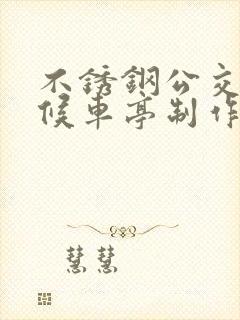 不锈鋼公交
候車亭制作
慧慧